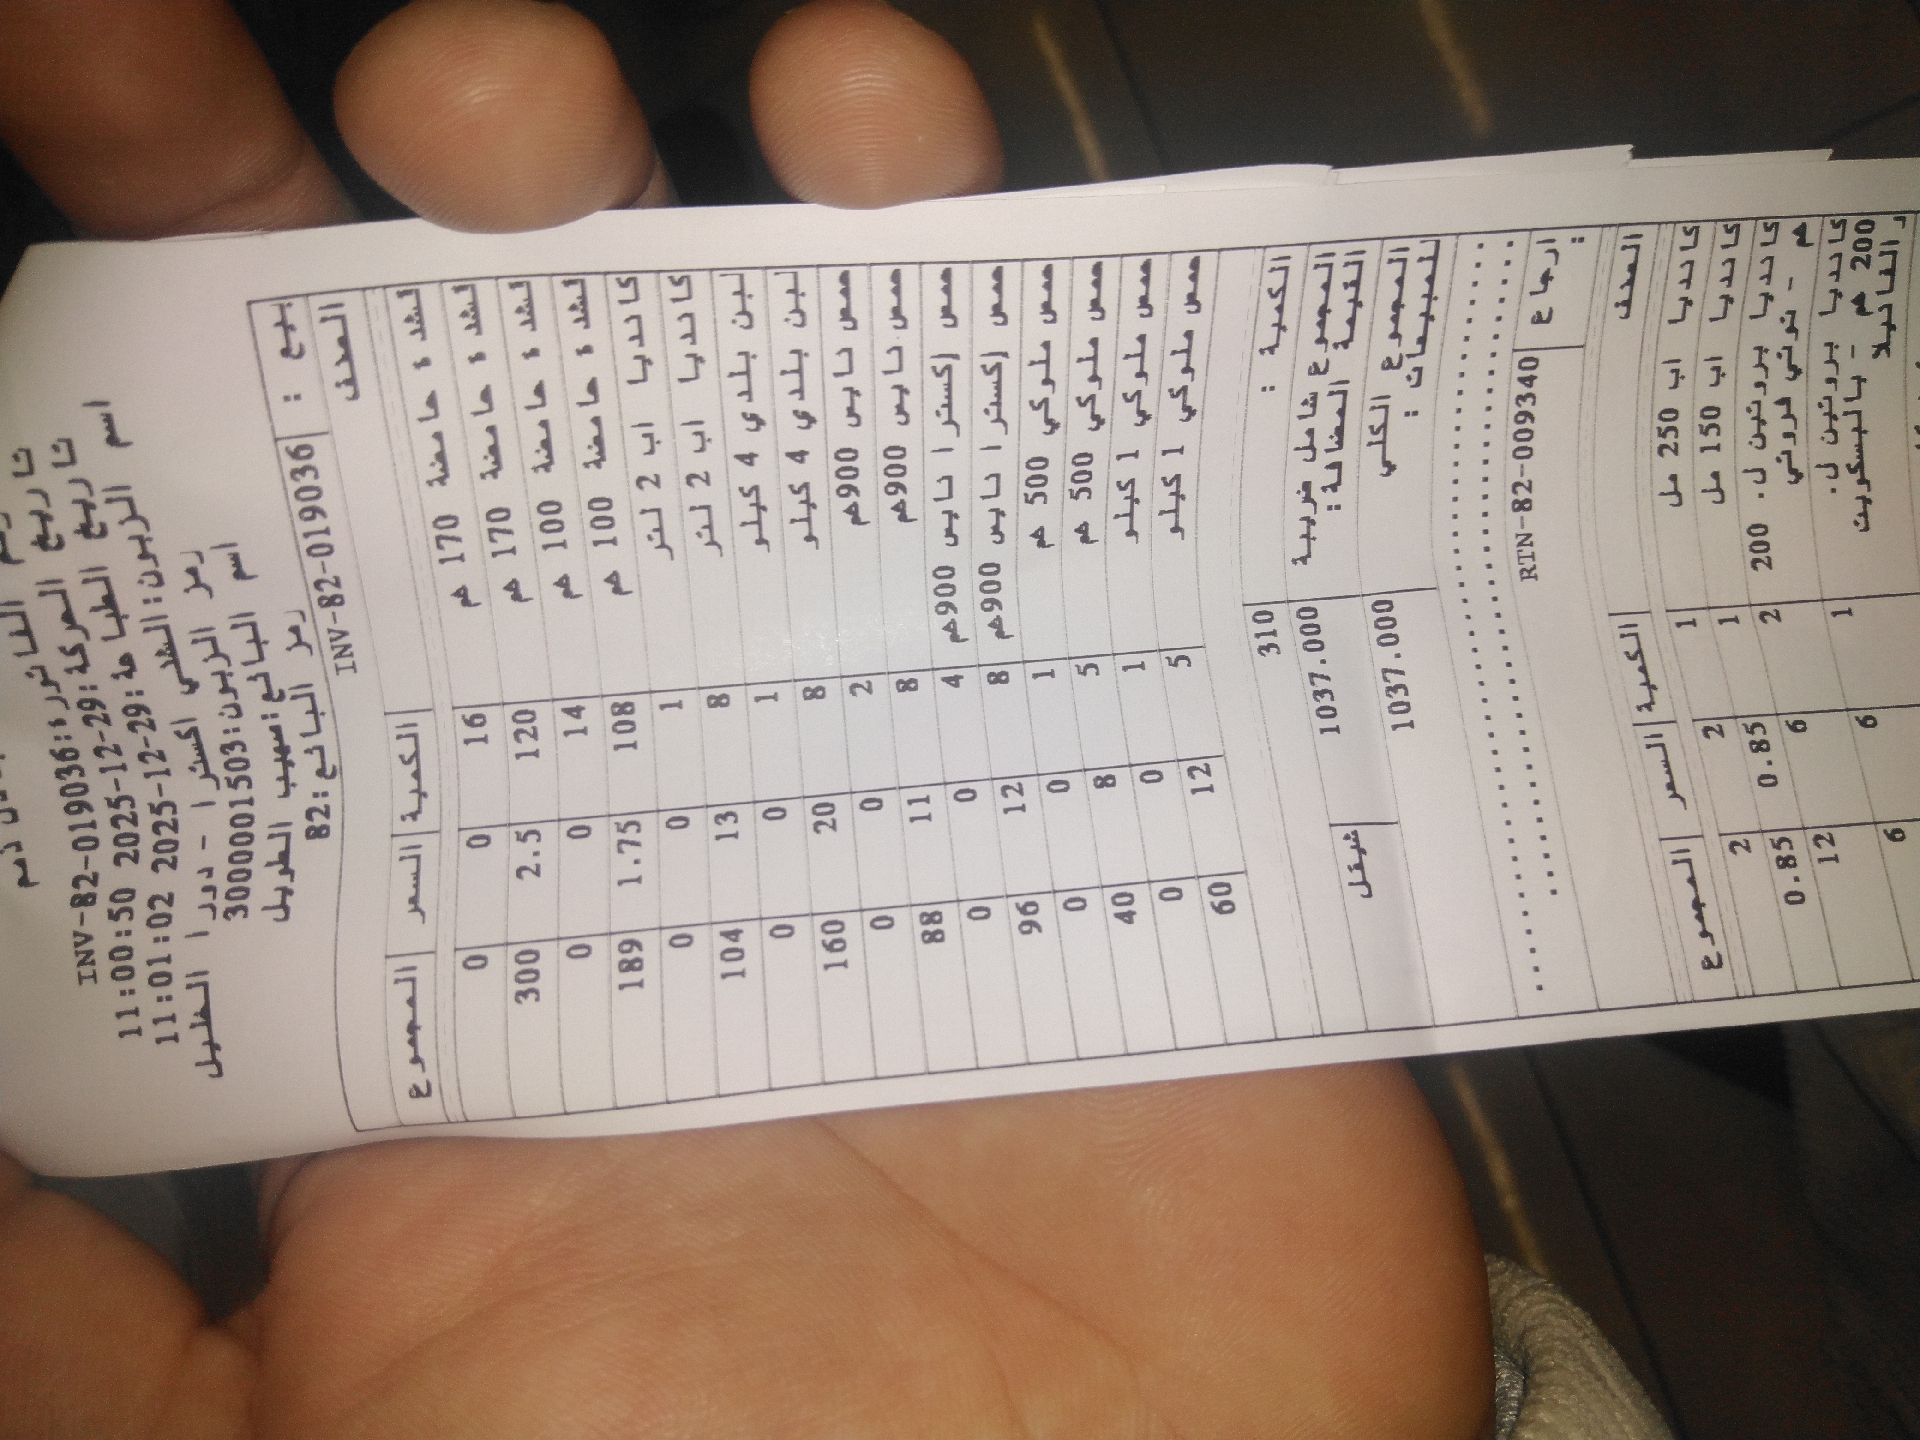 رقم الفاتورة:INV-82-019036
تاريخ الحركة:29-12-2025 11:00:50
تاريخ الطباعة:29-12-2025 11:01:02
اسم الزبون:الشني اكسترا - دورا الخليل
رمز الزبون:3000001503
اسم البائع:مهيب الطويل
رمز البائع:82
بيع : INV-82-019036
الصنف الكمية السعر المجموع
لشدة حامضة 170 غم 16 0 0
لشدة حامضة 170 غم 120 2.5 300
لشدة حامضة 100 غم 14 0 0
لشدة حامضة 100 غم 108 1.75 189
كانديا اب 2 لتر 1 0 0
كانديا اب 2 لتر 8 13 104
لبن بلدي 4 كيلو 1 0 0
لبن بلدي 4 كيلو 8 20 160
حمص نابس 900غم 2 0 0
حمص نابس 900غم 8 11 88
حمص إكسترا نابس 900غم 4 0 0
حمص إكسترا نابس 900غم 8 12 96
حمص ملوكي 500 غم 1 0 0
حمص ملوكي 500 غم 5 8 40
حمص ملوكي 1 كيلو 1 0 0
حمص ملوكي 1 كيلو 5 12 60
الكمية : 310
المجموع شامل ضريبة القيمة المضافة: 1037.000
المجموع الكلي للمبيعات : 1037.000 شيقل
ارجاع : RTN-82-009340
الصنف الكمية السعر المجموع
كانديا اب 250 مل 1 2 2
كانديا اب 150 مل 1 0.85 0.85
كانديا بروتين ل. 200 غم - توتي فروتي 2 6 12
كانديا بروتين ل. 200 غم - بالبسكويت 1 6 6